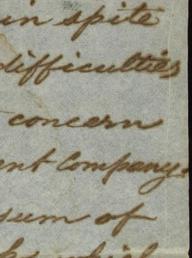 in spite
difficulties
concern
ent Company.
sum of
which